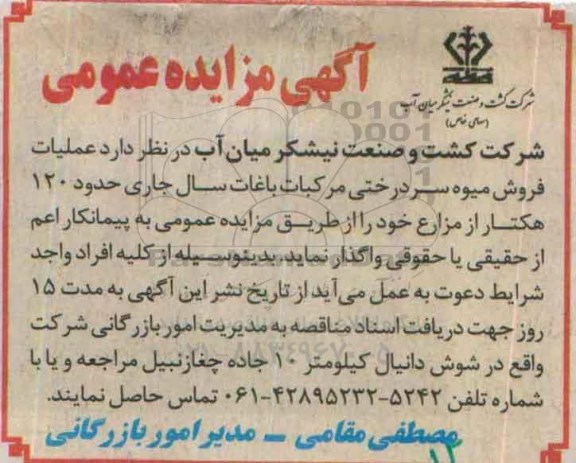 آگهی مزایده عمومی
شرکت کشت و صنعت نیشکر میان آب
(سهامی خاص)
شرکت کشت و صنعت نیشکر میان آب در نظر دارد عملیات
فروش میوه سردرختی مرکبات باغات سال جاری حدود ۱۲۰
هکتار از مزارع خود را از طریق مزایده عمومی به پیمانکار اعم
از حقیقی یا حقوقی واگذار نماید. بدینوسیله از کلیه افراد واجد
شرایط دعوت به عمل می آید از تاریخ نشر این آگهی به مدت ۱۵
روز جهت دریافت اسناد مناقصه به مدیریت امور بازرگانی شرکت
واقع در شوش دانیال کیلومتر ۱۰ جاده چغازنبیل مراجعه و یا با
شماره تلفن ۵۲۴۲-۴۲۸۹۵۲۳۲-۰۶۱ تماس حاصل نمایند.
مصطفی مقامی - مدیر امور بازرگانی
۱۲